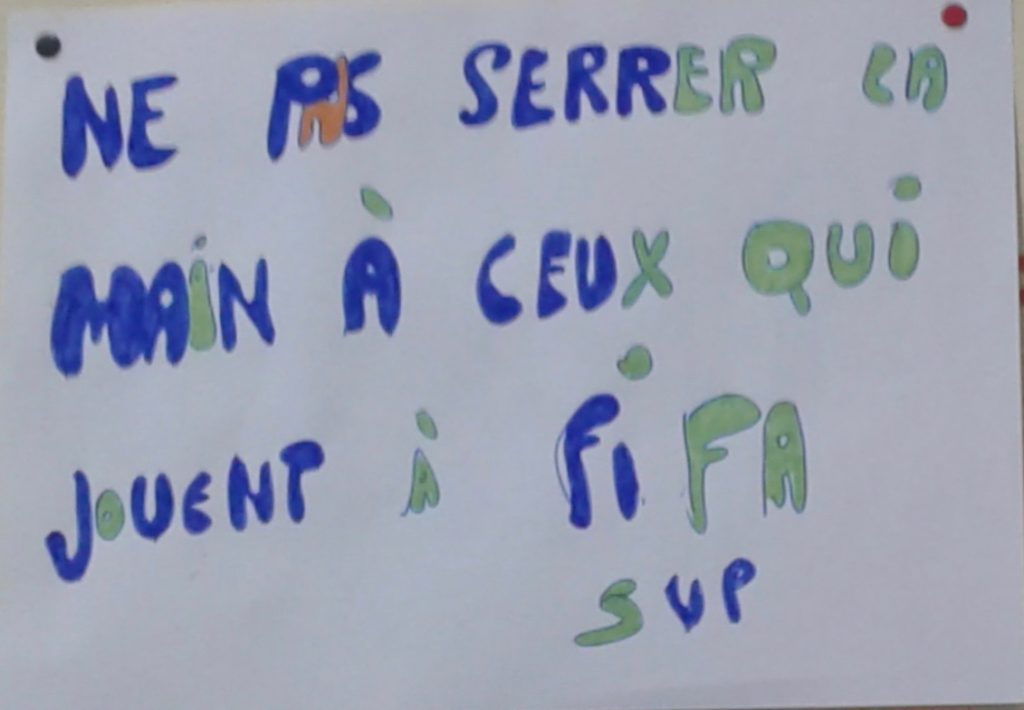 NE PAS SERRER LA
MAIN À CEUX QUI
JOUENT À FIFA
SUP